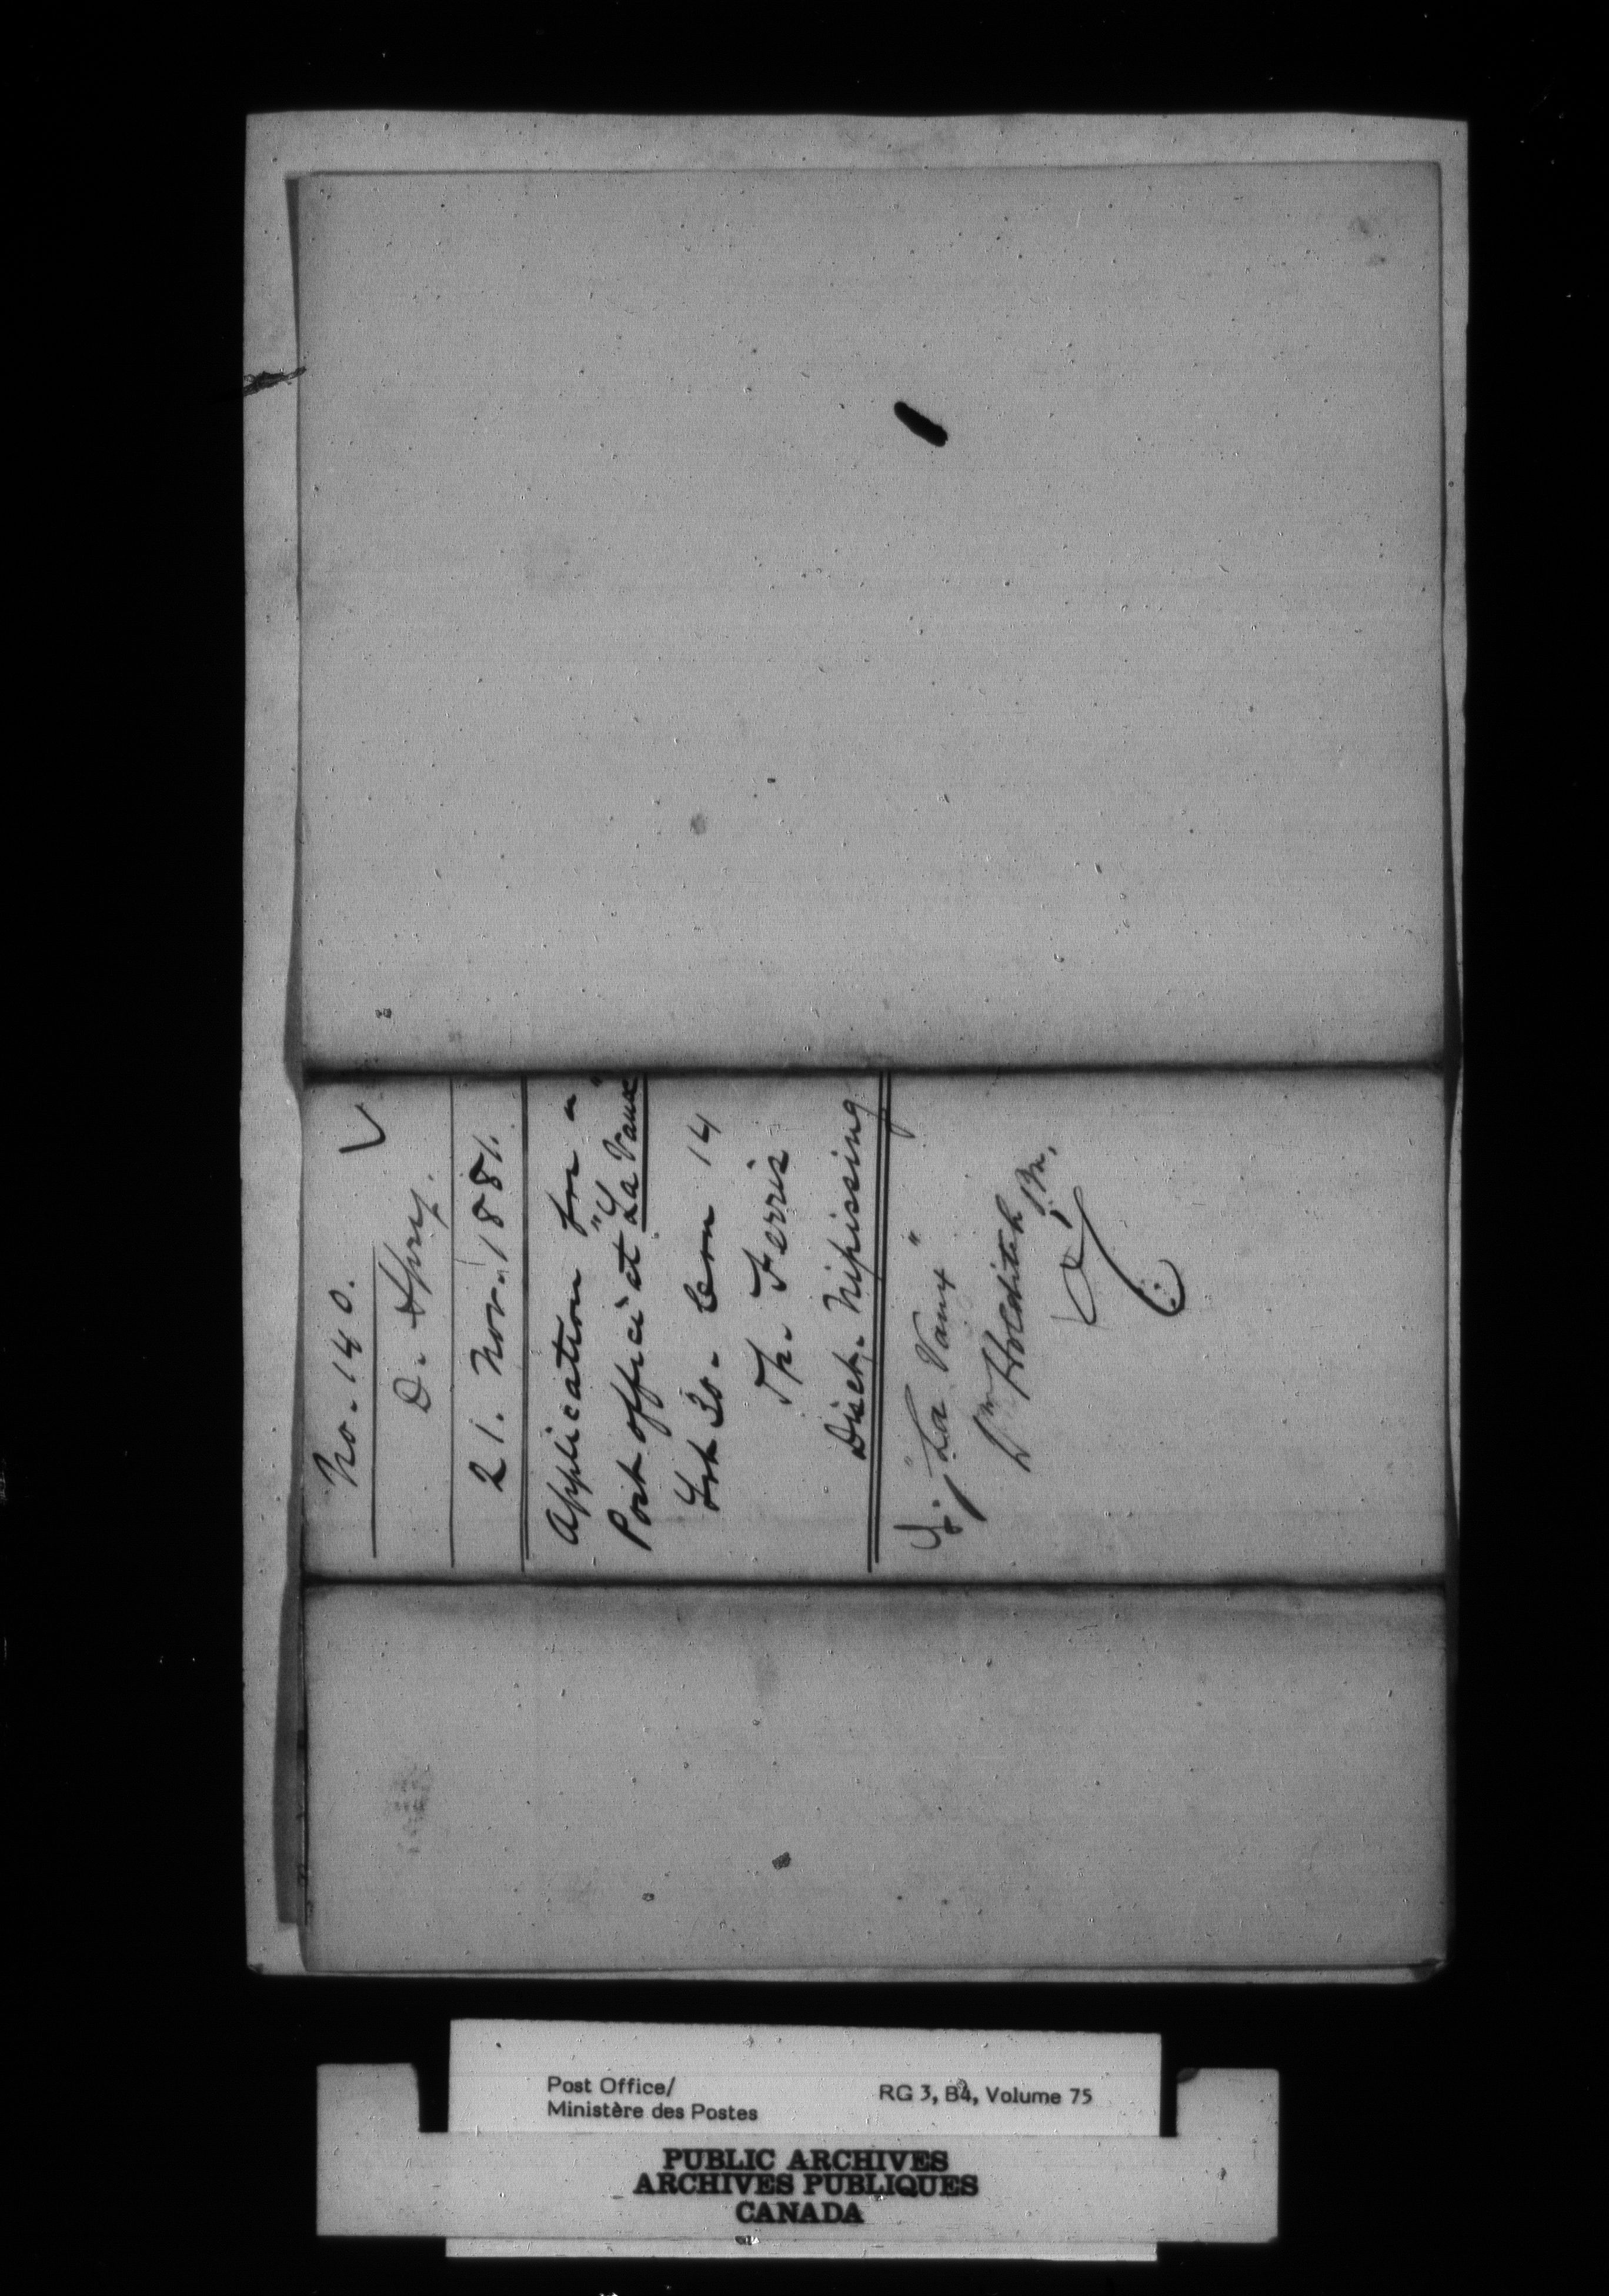 No. 140.
D. Spry.
21. Nov. 1881.
Application for a
Post office at "La Vaux"
Lot 30. Con 14
Tp. Ferris
Dist. Nipissing
"La Vaux"
Wm Holditch
Post Office/
Ministère des Postes
RG 3, B4, Volume 75
PUBLIC ARCHIVES
ARCHIVES PUBLIQUES
CANADA